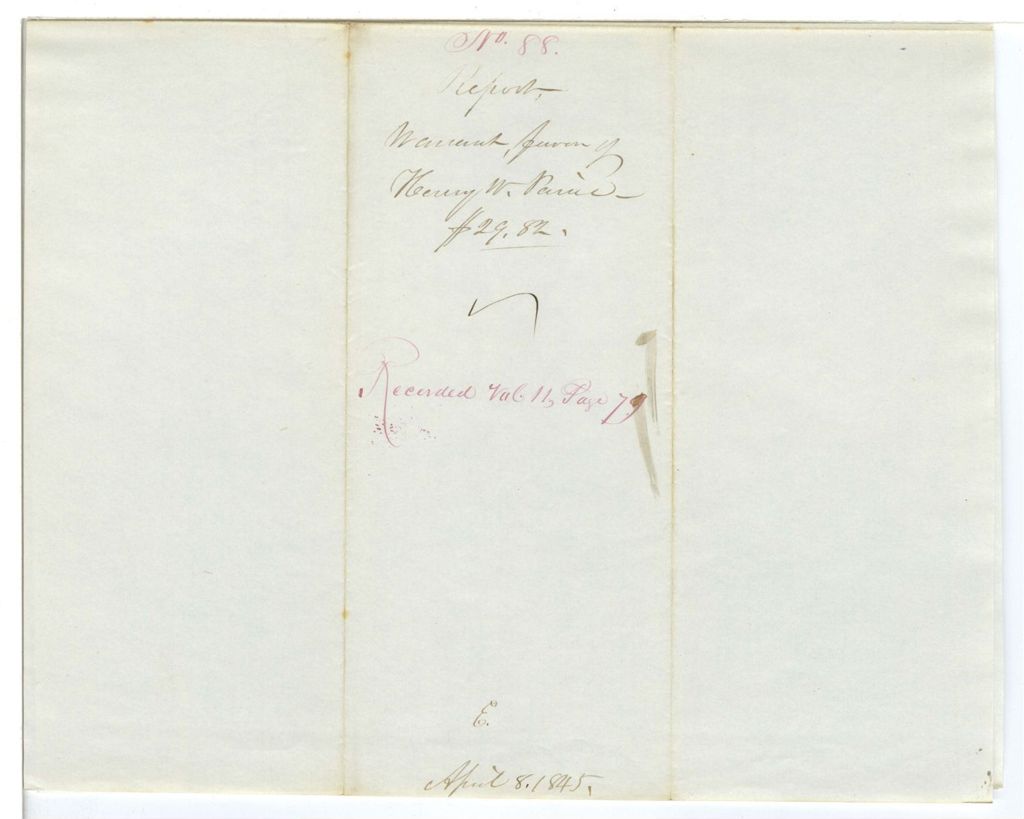 No. 88.
Report,
Warrant, favor of
Henry W. Paine
$29.82.
Recorded Vol. 11, Page 79
E.
April 8. 1845.